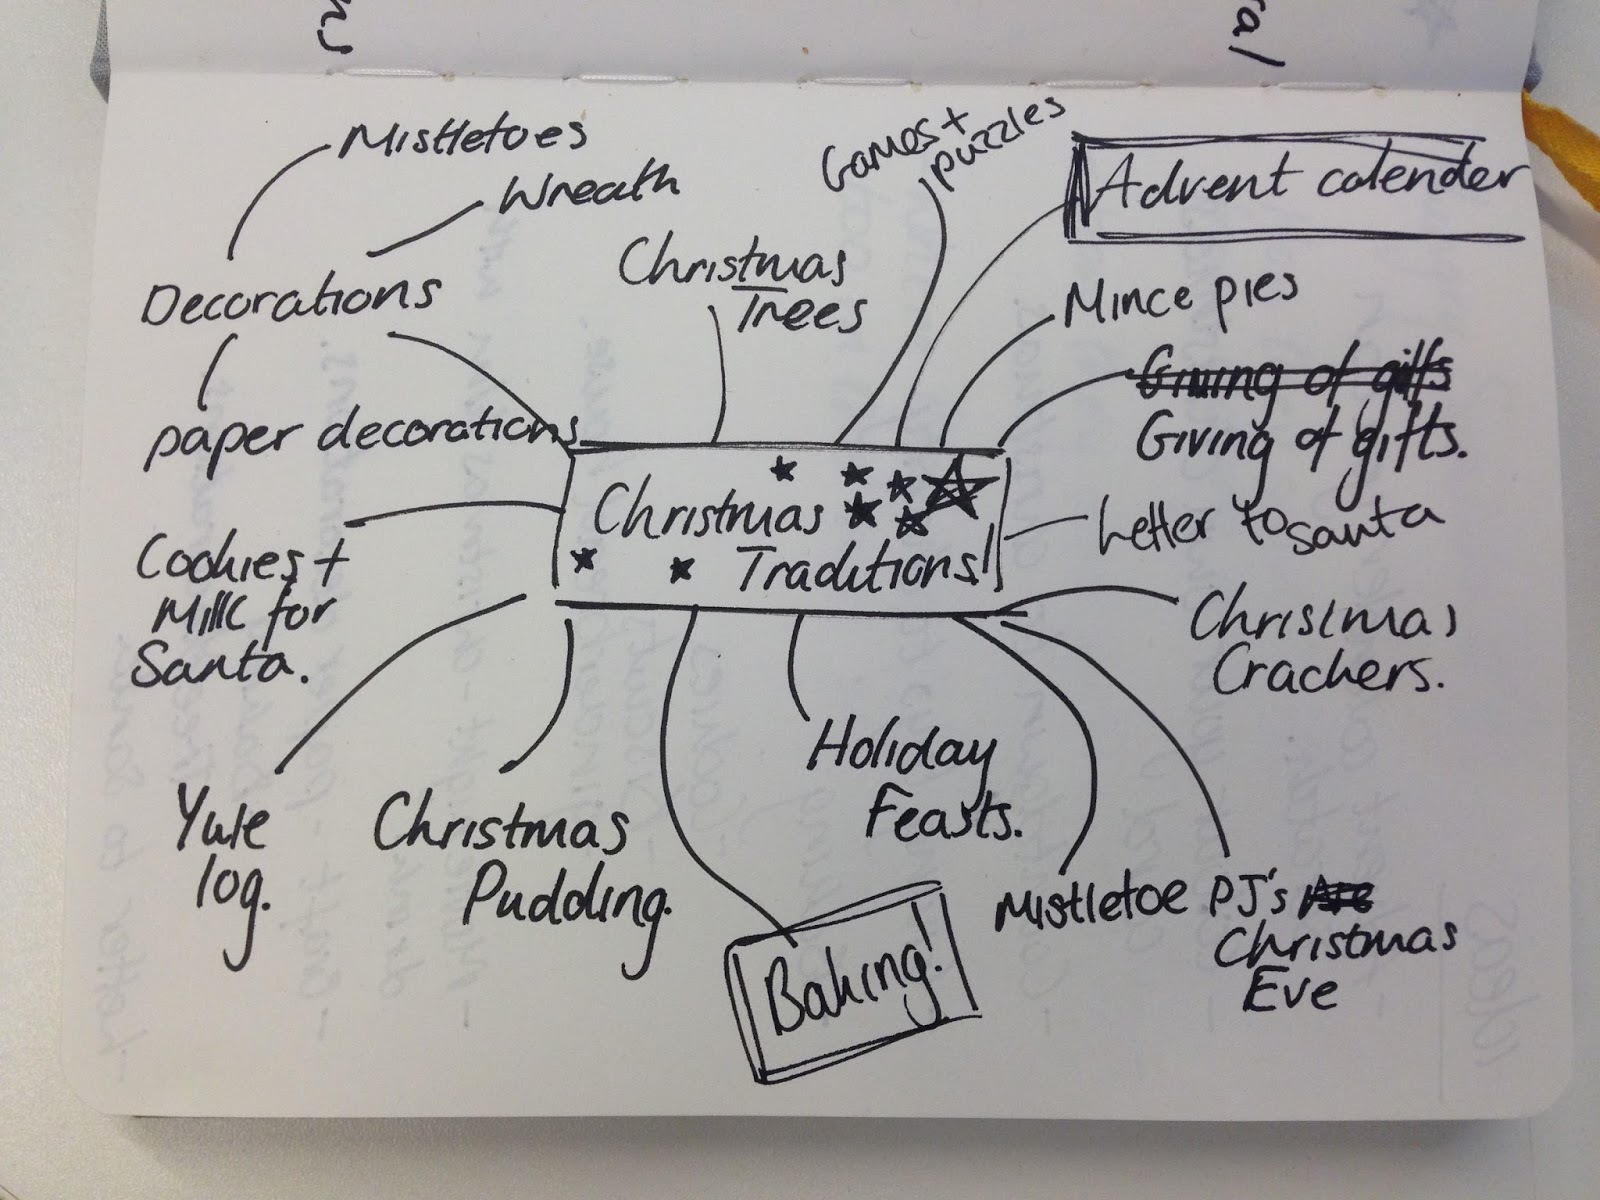 Mistletoes
Wreath
Decorations
paper decorations
Christmas
Trees
Games +
puzzles
Advent calender
Mince pies
Giving of gifts
Giving of gifts.
Letter to Santa
Christmas
Traditions!
Christmas
Crackers.
Cookies +
Milk for
Santa.
Yule
log.
Christmas
Pudding.
Baking!
Holiday
Feasts.
Mistletoe
PJ's
Christmas
Eve